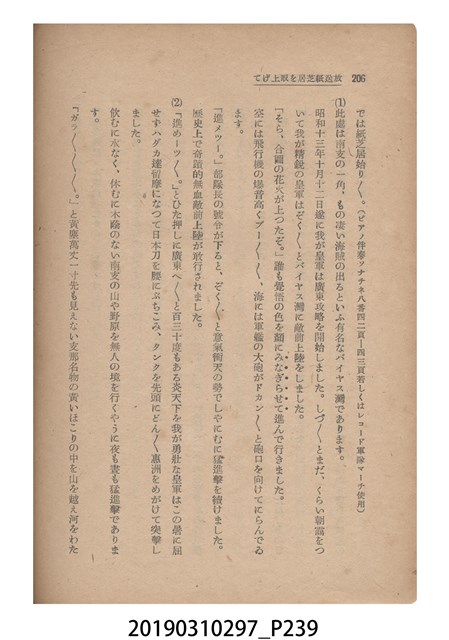 206 放送紙芝居を取上げて
では紙芝居始り〳〵。(ピアノ伴奏ソナチネ八番四二頁―四三頁若しくはレコード軍隊マーチ使用)
(1)此處は南支の一角、もの凄い海賊の出るといふ有名なバイヤス灣であります。
昭和十三年十月十二日遂に我が皇軍は廣東攻略を開始しました。しづ〳〵とまだ、くらい朝靄をつ
いて我が精鋭の皇軍はぞく〳〵とバイヤス灣に敵前上陸をしました。
「そら、合圖の花火が上つたぞ。」誰も覺悟の色を顏にみなぎらせて進んで行きました。
空には飛行機の爆音高くブー〳〵〳〵、海には軍艦の大砲がドカン〳〵と砲口を向けてにらんでゐ
ます。
「進メツー。」部隊長の號令が下ると、ぞく〳〵と意氣衝天の勢でしやにむに猛進撃を續けました。
歷史上で奇蹟的無血敵前上陸が敢行されました。
(2)「進めーツ〳〵。」とひた押しに廣東へ〳〵と百三十度もある炎天下を我が勇壯な皇軍はこの暑に屈
せずハダカ達磨になつて日本刀を腰にぶちこみ、タンクを先頭にどん〳〵惠洲をめがけて突撃し
飲むに水なく、休むに木陰のない南支の山や野原を無人の境を行くやうに夜も晝も猛進撃でありま
す。
「ガラ〳〵〳〵〳〵。」と黃塵萬丈一寸先も見えない支那名物の黃いほこりの中を山を越え河をわた
20190310297_P239